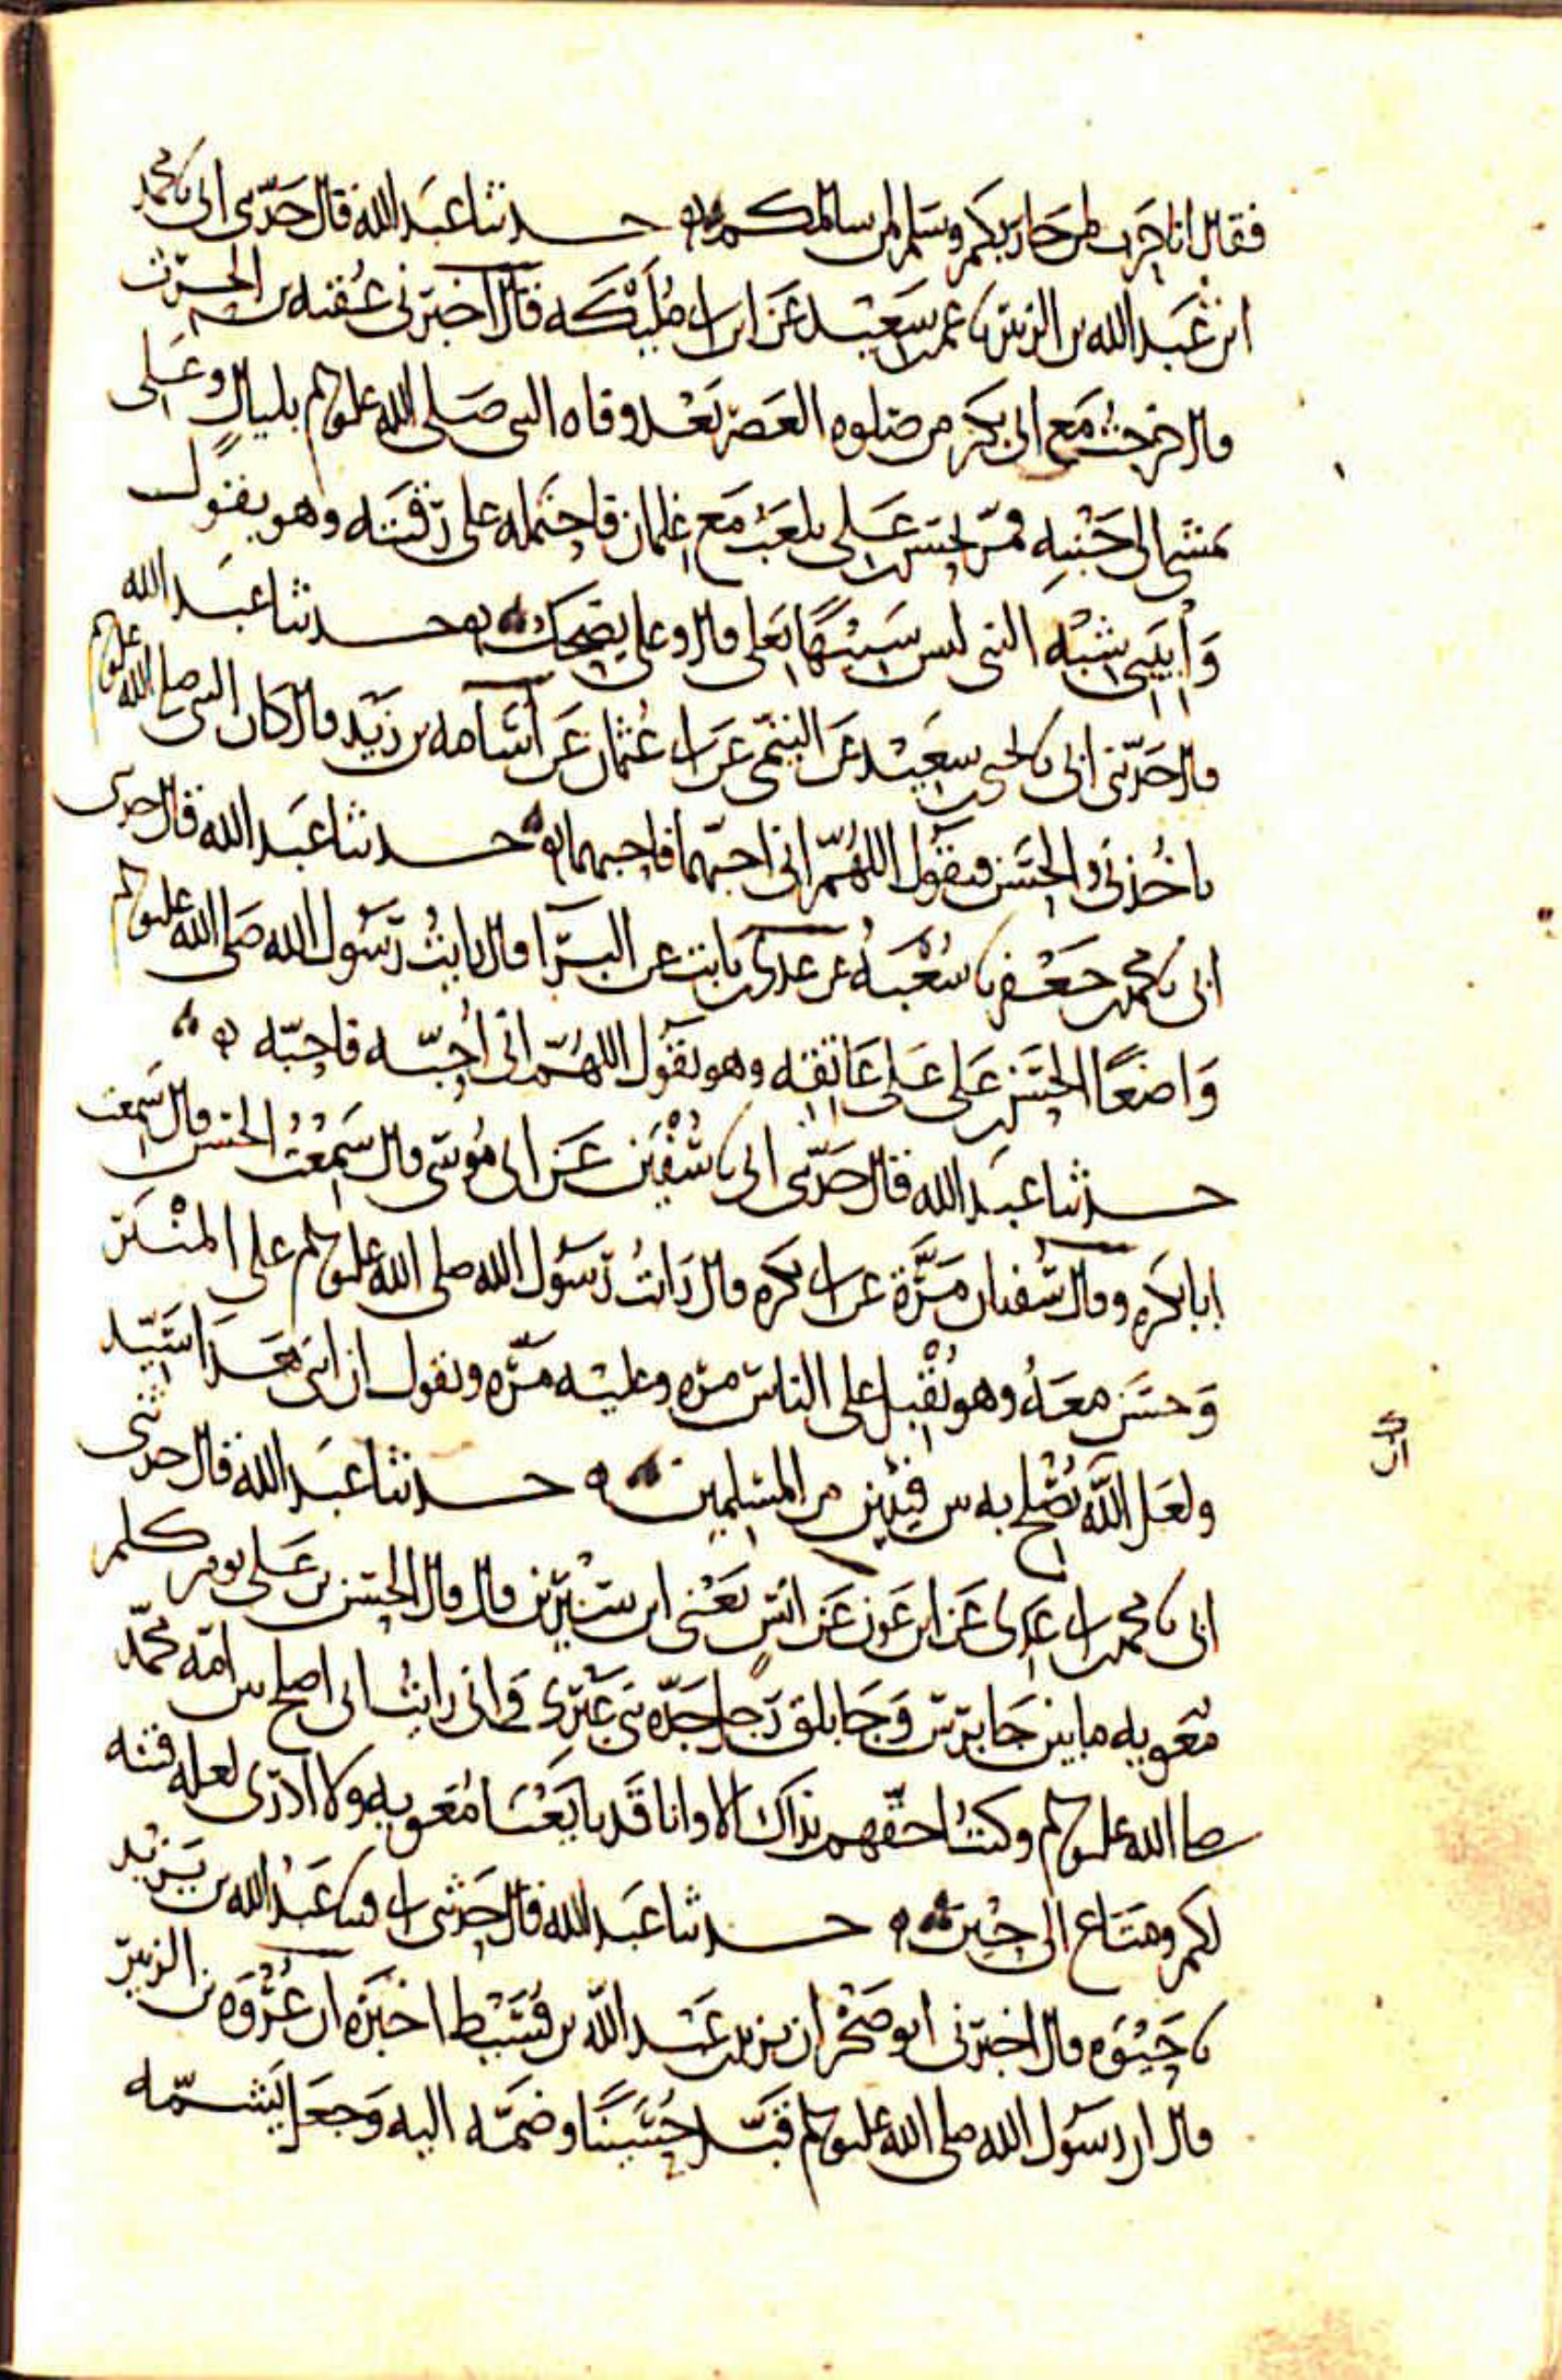 فقال انا حرب لمن حاربكم وسلم لمن سالمكم حدثنا عبد الله قال حدثنى ابى نا محمد
ابن عبد الله بن الزبير نا عمر بن سعيد عن ابن ابى مليكه قال اخبرنى عقبه بن الحرث
قال خرجت مع ابى بكر من صلوه العصر بعد وفاه النبى صلى الله عليه وسلم بليال وعلى
يمشى الى جنبه فمر بحسن بن على يلعب مع غلمان فاحتمله على رقبته وهو يقول
وابيبى شبه النبى ليس شبيها بعلى قال وعلى يضحك حدثنا عبد الله
قال حدثنى ابى نا يحيى بن سعيد عن التيمى عن ابى عثمان عن اسامه بن زيد قال كان النبى صلى الله عليه وسلم
ياخذنى والحسن فيقول اللهم انى احبهما فاحبهما حدثنا عبد الله قال حدثنى
ابى نا محمد بن جعفر نا شعبه عن عدى بن ثابت عن البرا قال رايت رسول الله صلى الله عليه وسلم
واضعا الحسن بن على على عاتقه وهو يقول اللهم انى احبه فاحبه
حدثنا عبد الله قال حدثنى ابى نا سفين عن ابى موسى قال سمعت الحسن قال سمعت
ابا بكره وقال سفيان مرة عن ابى بكره قال رايت رسول الله صلى الله عليه وسلم على المنبر
وحسن معه وهو يقبل على الناس مره وعليه مره ويقول ان ابنى هذا سيد
ولعل الله يصلح به بين فيتين من المسلمين حدثنا عبد الله قال حدثنى
ابى نا محمد بن ابى عدى عن ابن عون عن انس يعنى ابن سيرين قال قال الحسن بن على يوم كلم
معويه ما بين جابرس وجابلق رجل جده نبى غيرى وانى رايت ان اصلح بين امه محمد
صلى الله عليه وسلم وكنت احقهم بذاك الا وانا قد بايعنا معويه ولا ادرى لعله فتنه
لكم ومتاع الى حين حدثنا عبد الله قال حدثنى ابى قثنا عبد الله بن يزيد
نا حيوه قال اخبرنى ابو صخر ان يزيد بن عبد الله بن قسيط اخبره ان عروه بن الزبير
قال ان رسول الله صلى الله عليه وسلم قبل حسينا وضمه اليه وجعل يشمه